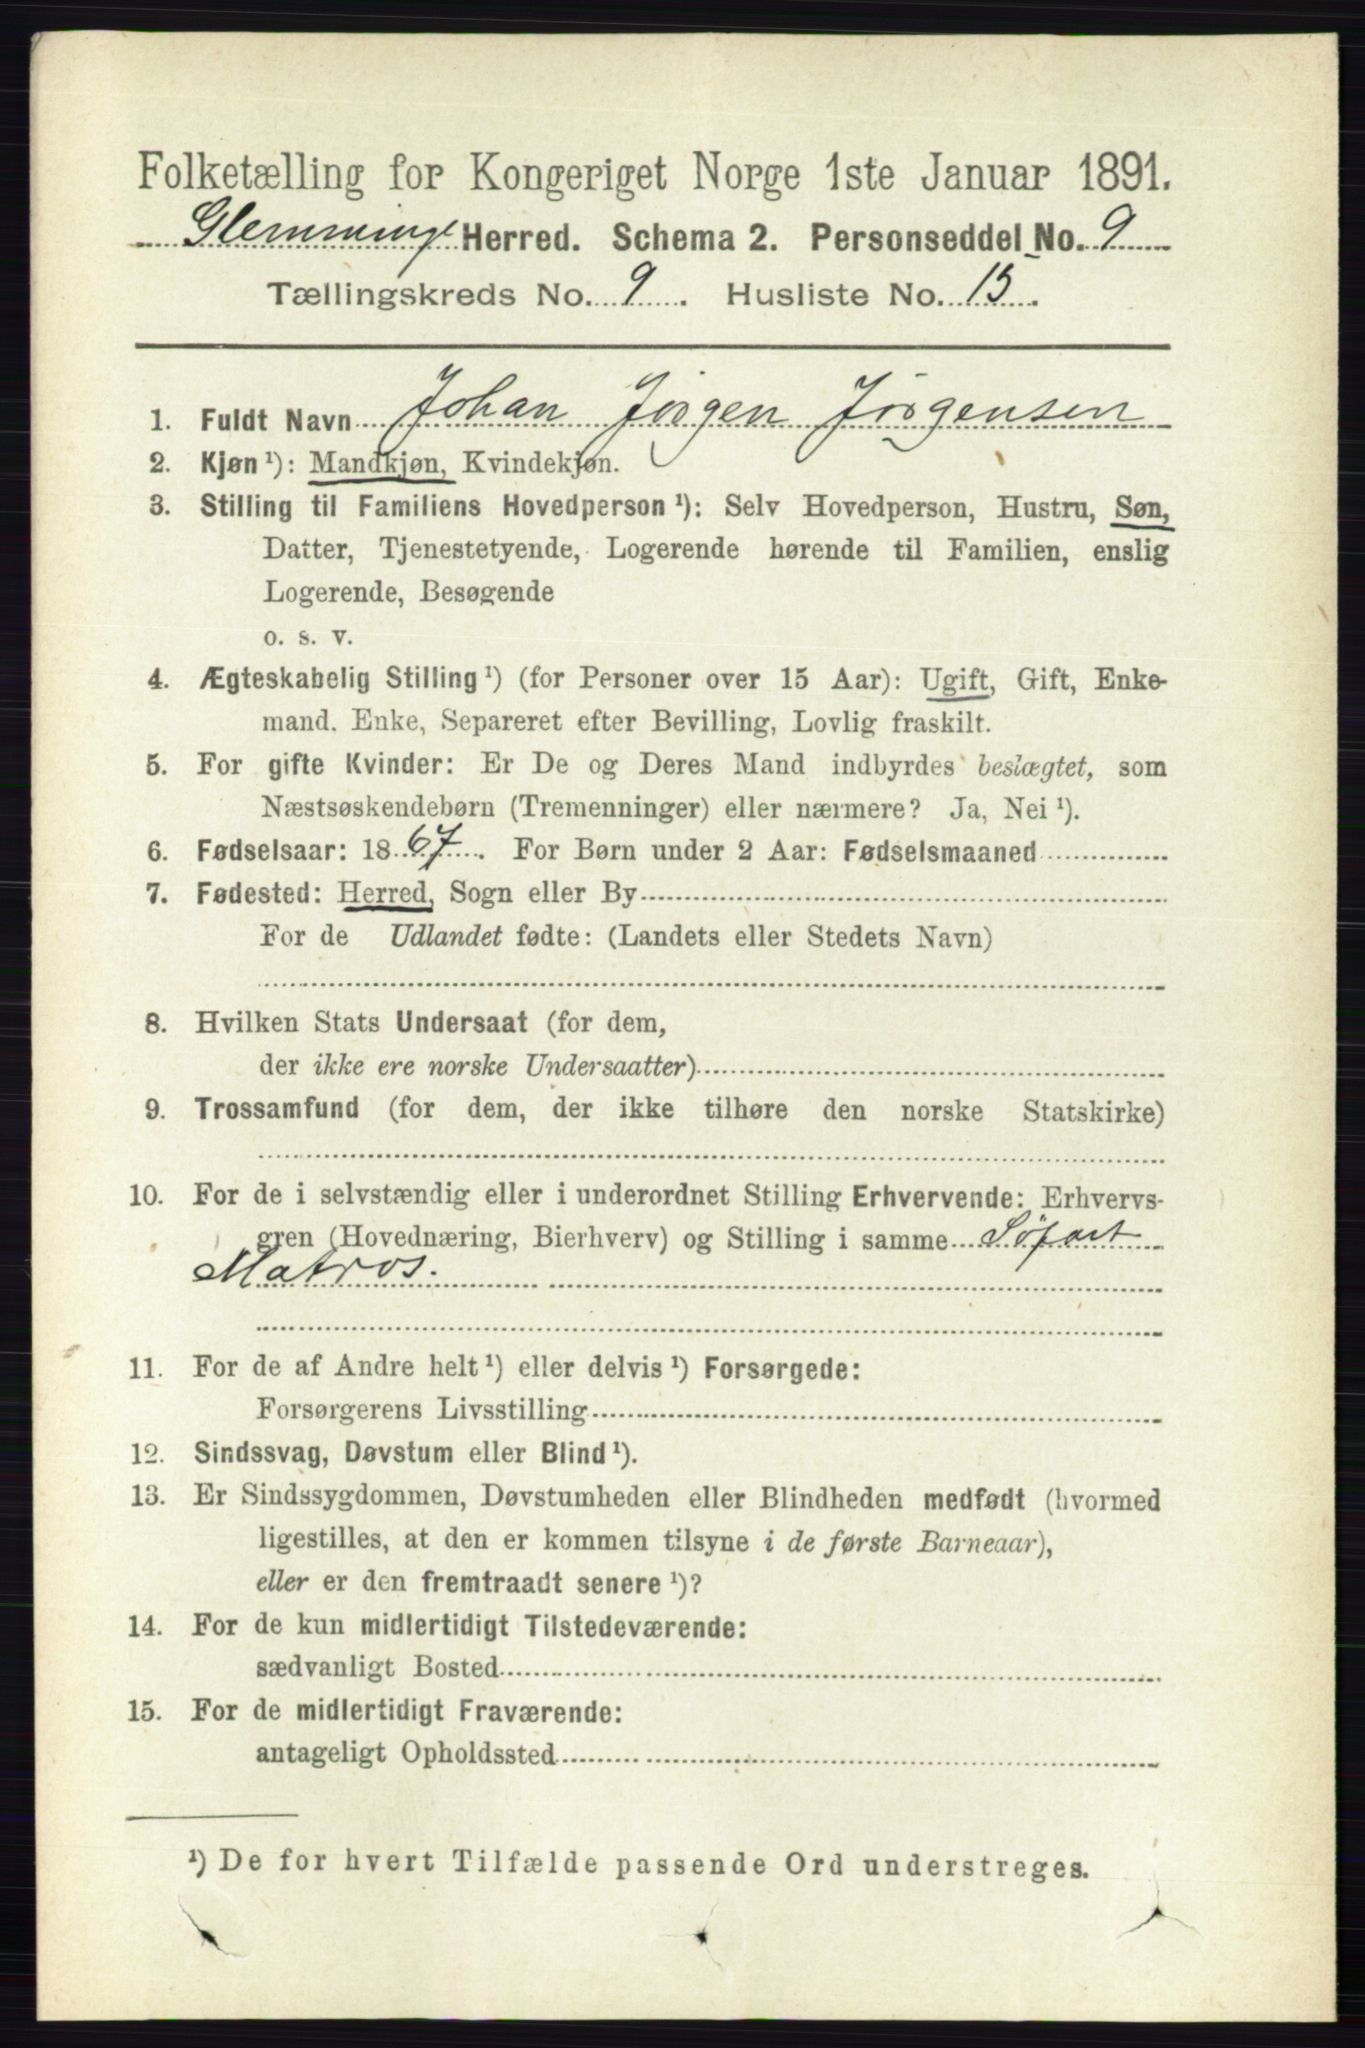 Folketælling for Kongeriget Norge 1ste Januar 1891.
Glemminge Herred. Schema 2. Personseddel No. 9
Tællingskreds No. 9. Husliste No. 13.
1. Fuldt Navn Johan Jørgen Jörgensen
2. Kjøn ¹): Mandkjøn, Kvindekjøn.
3. Stilling til Familiens Hovedperson ¹): Selv Hovedperson, Hustru, Søn,
Datter, Tjenestetyende, Logerende hørende til Familien, enslig
Logerende, Besøgende
o. s. v.
4. Ægteskabelig Stilling ¹) (for Personer over 15 Aar): Ugift, Gift, Enke-
mand. Enke, Separeret efter Bevilling, Lovlig fraskilt.
5. For gifte Kvinder: Er De og Deres Mand indbyrdes beslægtet, som
Næstsøskendebørn (Tremenninger) eller nærmere? Ja, Nei ¹).
6. Fødselsaar: 1867. For Børn under 2 Aar: Fødselsmaaned
7. Fødested: Herred, Sogn eller By
For de Udlandet fødte: (Landets eller Stedets Navn)
8. Hvilken Stats Undersaat (for dem,
der ikke ere norske Undersaatter)
9. Trossamfund (for dem, der ikke tilhøre den norske Statskirke)
10. For de i selvstændig eller i underordnet Stilling Erhvervende: Erhvervs-
gren (Hovednæring, Bierhverv) og Stilling i samme Söfart
Matros.
11. For de af Andre helt ¹) eller delvis ¹) Forsørgede:
Forsørgerens Livsstilling
12. Sindssvag, Døvstum eller Blind ¹).
13. Er Sindssygdommen, Døvstumheden eller Blindheden medfødt (hvormed
ligestilles, at den er kommen tilsyne i de første Barneaar),
eller er den fremtraadt senere ¹)?
14. For de kun midlertidigt Tilstedeværende:
sædvanligt Bosted
15. For de midlertidigt Fraværende:
antageligt Opholdssted
¹) De for hvert Tilfælde passende Ord understreges.